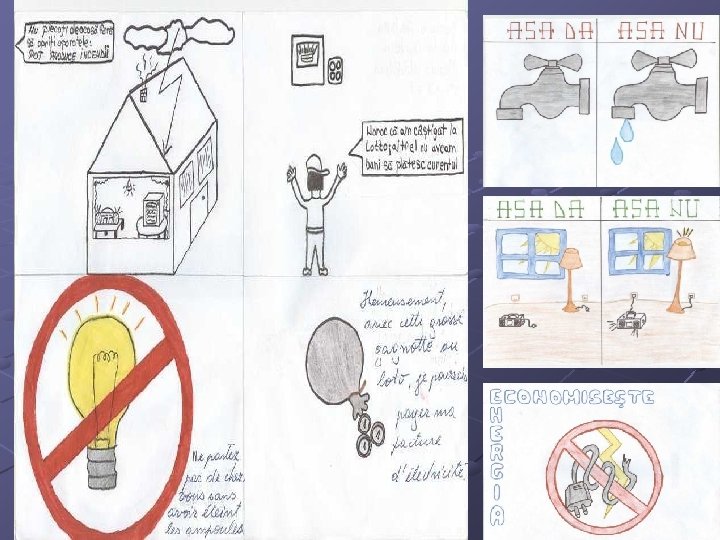 Nu plecați de acasă fără
să opriți aparatele:
POT PRODUCE INCENDII
Noroc că am câștigat la
Lotto, altfel nu aveam
bani să plătesc curentul
Ne partez
pas de chez
vous sans
avoir éteint
les ampoules.
Heureusement,
avec cette grosse
cagnotte au
loto, je pourrais
payer ma
facture
d'électricité.
AȘA DA AȘA NU
AȘA DA AȘA NU
ECONOMISEȘTE
ENERGIA